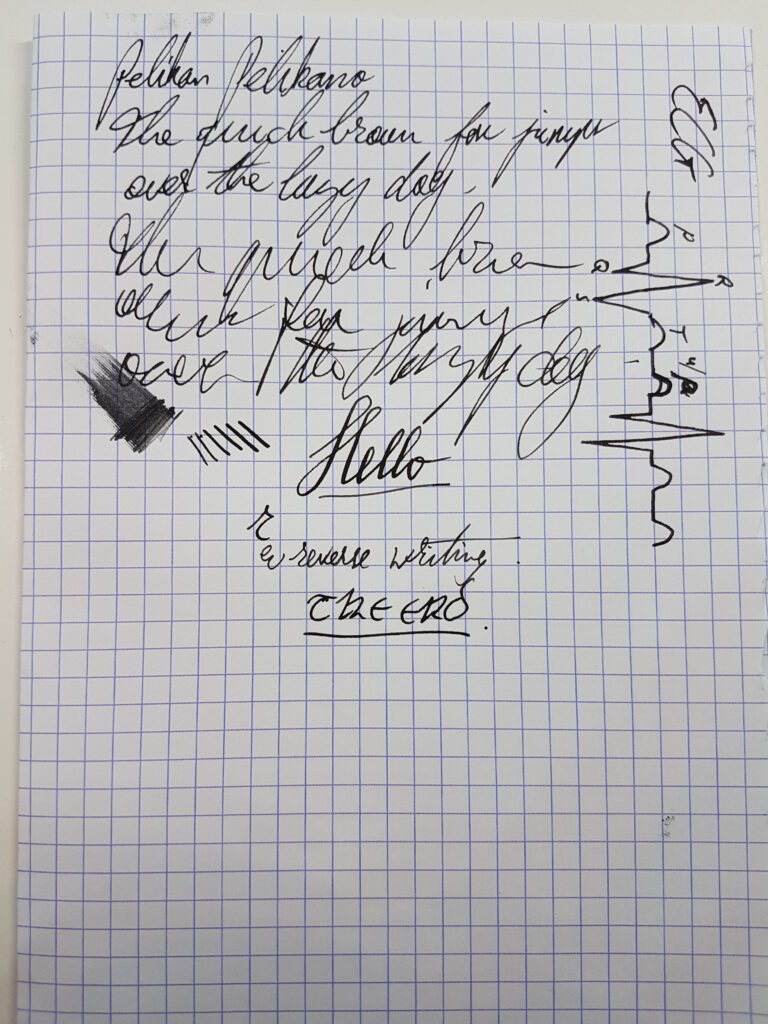 Pelikan Pelikano
The quick brown fox jumps
over the lazy dog.
The quick brown
fox jumps
over the lazy dog
Hello
r
reverse writing.
THE END.
ECG
P
Q R
S
T